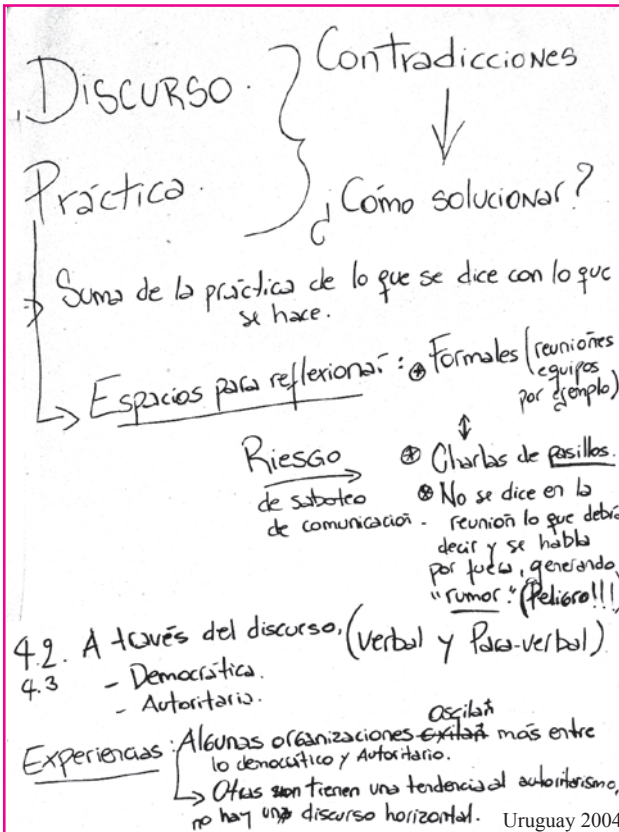 DISCURSO.
Práctica.
Contradicciones
¿Cómo solucionar?
Suma de la práctica de lo que se dice con lo que
se hace.
Espacios para reflexionar: Formales (reuniones
equipos
por ejemplo)
Riesgo
de saboteo
de comunicación.
Charlas de pasillos.
No se dice en la
reunión lo que debría
decir y se habla
por fuera, generando,
"rumor." (Peligro!!!)
4.2. A través del discurso, (verbal y Para-verbal)
4.3 - Democrática.
- Autoritaria.
Experiencias: Algunas organizaciones oscilan más entre
lo democrático y Autoritario.
Otras tienen una tendencia al autoritarismo,
no hay un discurso horizontal.
Uruguay 2004